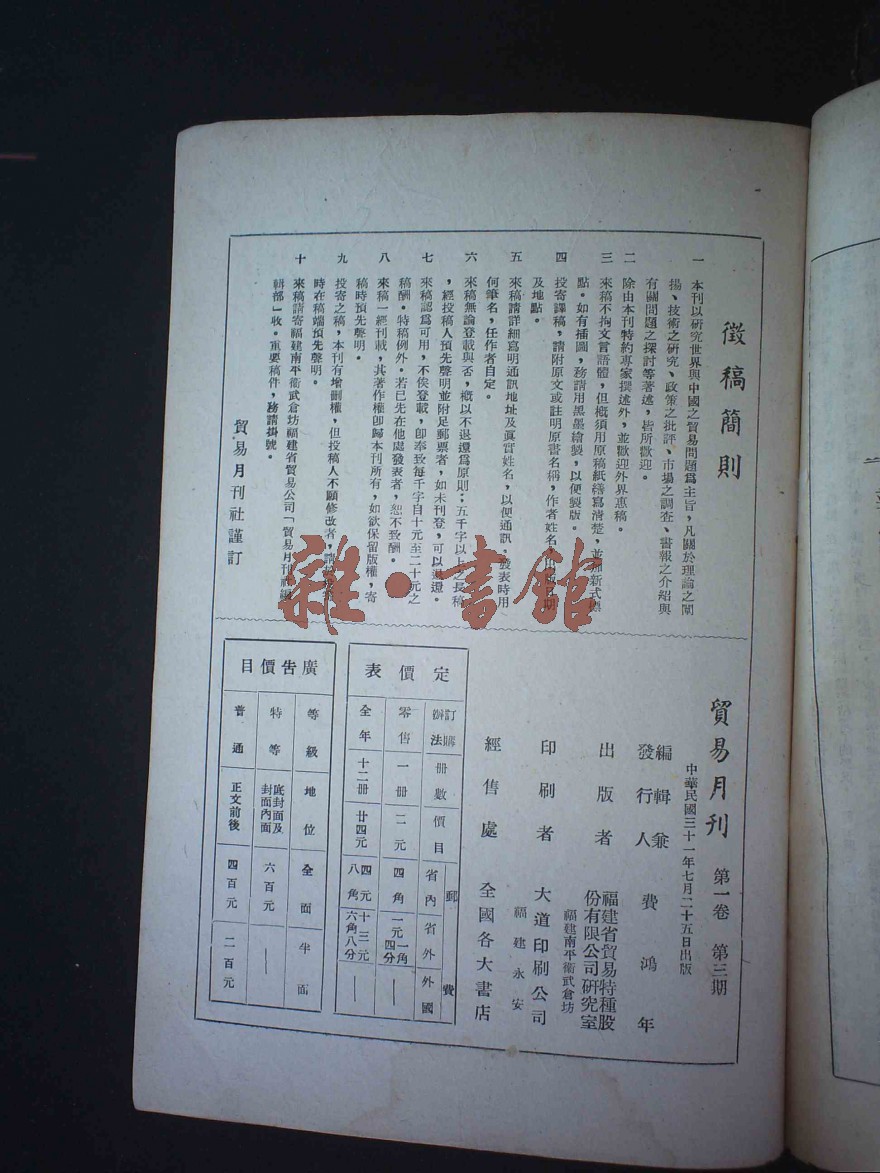 徵稿簡則
一 本刊以研究世界與中國之貿易問題爲主旨，凡關於理論之闡
揚、技術之研究、政策之批評、市場之調查、書報之介紹與
有關問題之探討等著述，皆所歡迎。
二 除由本刊特約專家撰述外，並歡迎外界惠稿。
三 來稿不拘文言語體，但概須用原稿紙繕寫清楚，並加新式標
點。如有插圖，務請用黑墨繪製，以便製版。
四 投寄譯稿，請附原文或註明原書名稱，作者姓名，出版日期
及地點。
五 來稿請詳細寫明通訊地址及眞實姓名，以便通訊。發表時用
何筆名，任作者自定。
六 來稿無論登載與否，概以不退還爲原則；五千字以上之長稿
，經投稿人預先聲明並附足郵票者，如未刊登，可以退還。
七 來稿認爲可用，不俟登載，卽奉致每千字自十元至二十元之
稿酬。特稿例外。若已先在他處發表者，恕不致酬。
八 來稿一經刊載，其著作權卽歸本刊所有，如欲保留版權，寄
稿時預先聲明。
九 投寄之稿，本刊有增刪權，但投稿人不願修改者，請
時在稿端預先聲明。
十 來稿請寄福建南平衞武倉坊福建省貿易公司「貿易月刊社編
輯部」收。重要稿件，務請掛號。
貿易月刊社謹訂
貿易月刊 第一卷 第三期
中華民國三十一年七月二十五日出版
編輯兼
發行人 費鴻年
出版者 福建省貿易特種股
份有限公司研究室
福建南平衞武倉坊
印刷者 大道印刷公司
福建永安
經售處 全國各大書店
定價表
訂購辦法 冊數 價目 郵費 省內 省外 外國
零售 一冊 二元 四角 一元一角四分 —
全年 十二冊 廿四元 四元八角 十三元六角八分 —
廣告價目
等級 地位 全面 半面
特等 底封面及封面內面 六百元 —
普通 正文前後 四百元 二百元
雜·書館